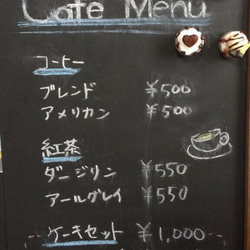 Cafe Menu
コーヒー
ブレンド ￥500
アメリカン ￥500
紅茶
ダージリン ￥550
アールグレイ ￥550
ケーキセット ￥1,000